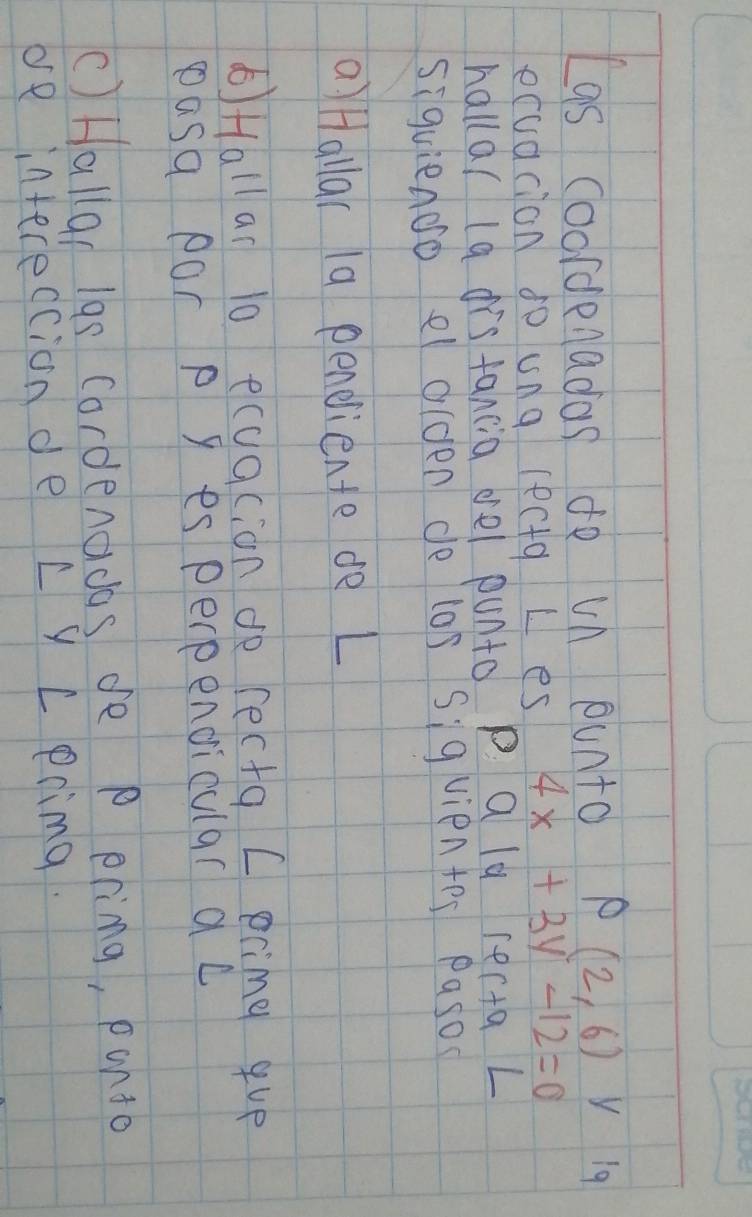 Las coordenadas de un punto P(2,6) y la
ecuación de una recta L es 4x + 3y - 12 = 0
hallar la distancia del punto P a la recta L
siguiendo el orden de los siguientes pasos
a) Hallar la pendiente de L
b) Hallar la ecuación de recta L prima que
pasa por P y es perpendicular a L
c) Hallar las cordenadas de P prima, punto
de interección de L y L prima.
scribe